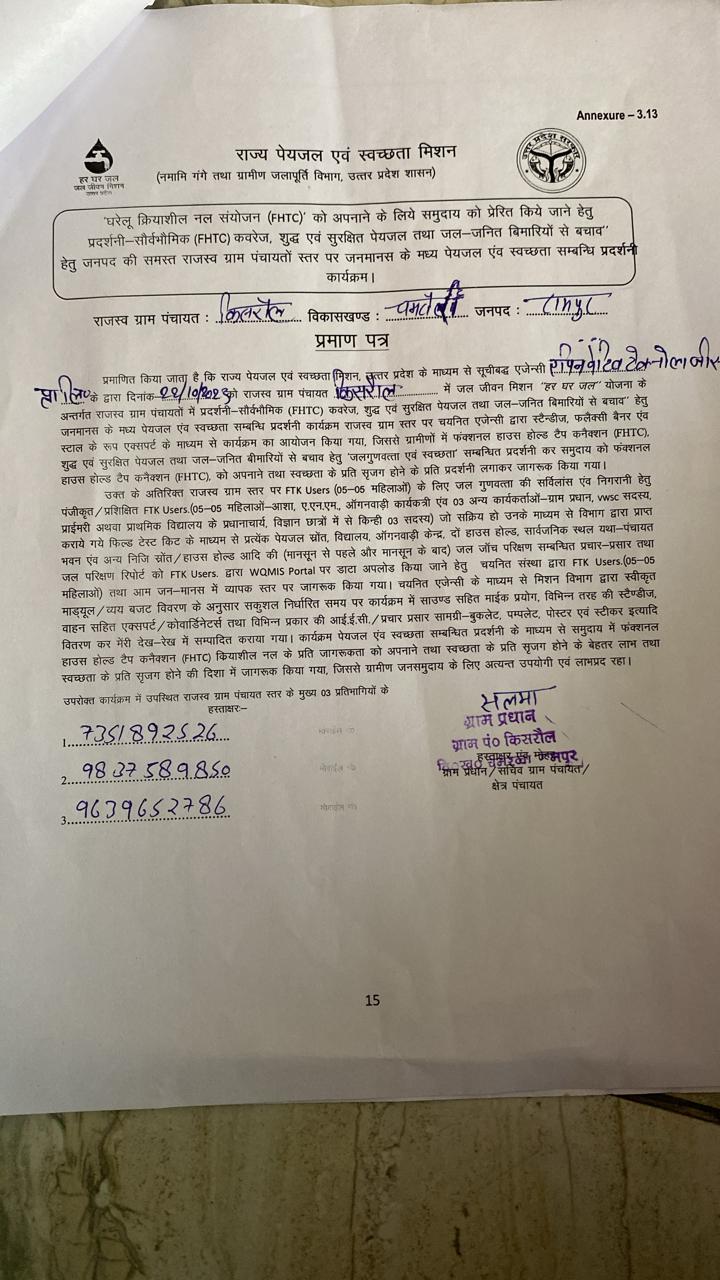 Annexure – 3.13
हर घर जल
जल जीवन मिशन
राज्य पेयजल एवं स्वच्छता मिशन
(नमामि गंगे तथा ग्रामीण जलापूर्ति विभाग, उत्तर प्रदेश शासन)
उत्तर प्रदेश सरकार
'घरेलू क्रियाशील नल संयोजन (FHTC)' को अपनाने के लिये समुदाय को प्रेरित किये जाने हेतु
प्रदर्शनी–सौर्वभौमिक (FHTC) कवरेज, शुद्ध एवं सुरक्षित पेयजल तथा जल–जनित बिमारियों से बचाव"
हेतु जनपद की समस्त राजस्व ग्राम पंचायतों स्तर पर जनमानस के मध्य पेयजल एंव स्वच्छता सम्बन्धि प्रदर्शनी
कार्यक्रम।
राजस्व ग्राम पंचायत : किसरौल विकासखण्ड : जनपद : रामपुर
प्रमाण पत्र
प्रमाणित किया जाता है कि राज्य पेयजल एवं स्वच्छता मिशन, उत्तर प्रदेश के माध्यम से सूचीबद्ध एजेन्सी
प्रा० लि० के द्वारा दिनांक को राजस्व ग्राम पंचायत किसरौल में जल जीवन मिशन "हर घर जल" योजना के
अन्तर्गत राजस्व ग्राम पंचायतों में प्रदर्शनी–सौर्वभौमिक (FHTC) कवरेज, शुद्ध एवं सुरक्षित पेयजल तथा जल–जनित बिमारियों से बचाव" हेतु
जनमानस के मध्य पेयजल एंव स्वच्छता सम्बन्धि प्रदर्शनी कार्यक्रम राजस्व ग्राम स्तर पर चयनित एजेन्सी द्वारा स्टैन्डीज, फलैक्सी बैनर एंव
स्टाल के रूप एक्सपर्ट के माध्यम से कार्यक्रम का आयोजन किया गया, जिससे ग्रामीणों में फंक्शनल हाउस होल्ड टैप कनैक्शन (FHTC),
शुद्ध एवं सुरक्षित पेयजल तथा जल–जनित बीमारियों से बचाव हेतु 'जलगुणवत्ता एवं स्वच्छता' सम्बन्धित प्रदर्शनी कर समुदाय को फंक्शनल
हाउस होल्ड टैप कनैक्शन (FHTC), को अपनाने तथा स्वच्छता के प्रति सृजग होने के प्रति प्रदर्शनी लगाकर जागरूक किया गया।
उक्त के अतिरिक्त राजस्व ग्राम स्तर पर FTK Users (05–05 महिलाओं) के लिए जल गुणवत्ता की सर्विलांस एंव निगरानी हेतु
पंजीकृत/प्रशिक्षित FTK Users.(05–05 महिलाओं–आशा, ए.एन.एम., ऑगनवाड़ी कार्यकत्री एंव 03 अन्य कार्यकर्ताओं–ग्राम प्रधान, vwsc सदस्य,
प्राईमरी अथवा प्राथमिक विद्यालय के प्रधानाचार्य, विज्ञान छात्रों में से किन्ही 03 सदस्य) जो सक्रिय हो उनके माध्यम से विभाग द्वारा प्राप्त
कराये गये फिल्ड टेस्ट किट के माध्यम से प्रत्येक पेयजल स्रोंत, विद्यालय, ऑगनवाड़ी केन्द्र, दों हाउस होल्ड, सार्वजनिक स्थल यथा–पंचायत
भवन एंव अन्य निजि स्रोंत/हाउस होल्ड आदि की (मानसून से पहले और मानसून के बाद) जल जॉच परिक्षण सम्बन्धित प्रचार–प्रसार तथा
जल परिक्षण रिपोर्ट को FTK Users. द्वारा WQMIS Portal पर डाटा अपलोड किया जाने हेतु चयनित संस्था द्वारा FTK Users.(05–05
महिलाओं) तथा आम जन–मानस में व्यापक स्तर पर जागरूक किया गया। चयनित एजेन्सी के माध्यम से मिशन विभाग द्वारा स्वीकृत
माड्यूल/व्यय बजट विवरण के अनुसार सकुशल निर्धारित समय पर कार्यक्रम में साउण्ड सहित माईक प्रयोग, विभिन्न तरह की स्टैण्डीज,
वाहन सहित एक्सपर्ट/कोवार्डिनेटर्स तथा विभिन्न प्रकार की आई.ई.सी./प्रचार प्रसार सामग्री–बुकलेट, पम्पलेट, पोस्टर एवं स्टीकर इत्यादि
वितरण कर मेंरी देख–रेख में सम्पादित कराया गया। कार्यक्रम पेयजल एंव स्वच्छता सम्बन्धित प्रदर्शनी के माध्यम से समुदाय में फंक्शनल
हाउस होल्ड टैप कनैक्शन (FHTC) कियाशील नल के प्रति जागरूकता को अपनाने तथा स्वच्छता के प्रति सृजग होने के बेहतर लाभ तथा
स्वच्छता के प्रति सृजग होने की दिशा में जागरूक किया गया, जिससे ग्रामीण जनसमुदाय के लिए अत्यन्त उपयोगी एवं लाभप्रद रहा।
उपरोक्त कार्यक्रम में उपस्थित राजस्व ग्राम पंचायत स्तर के मुख्य 03 प्रतिभागियों के
हस्ताक्षरः–
1. 7351892526
2. 9837589850
3. 9639652786
सलमा
ग्राम प्रधान
ग्राम पं० किसरौल
हस्ताक्षर एंव मोहर
ग्राम प्रधान/सचिव ग्राम पंचायत/
क्षेत्र पंचायत
15